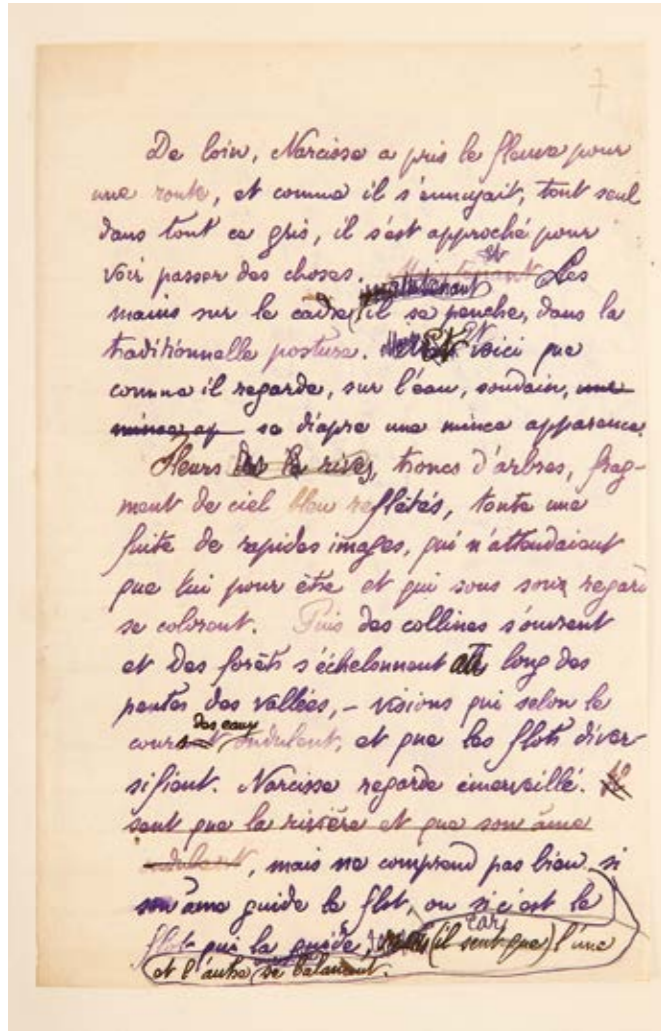 7
De loin, Narcisse a pris le fleuve pour
une route, et comme il s'ennuyait, tout seul
dans tout ce gris, il s'est approché pour
voir passer des choses. Maintenant Les
maintenant
mains sur le cadre, il se penche, dans la
traditionnelle posture. Et voici que
comme il regarde, sur l'eau, soudain, une
mince ap se diapre une mince apparence.
Fleurs des rives, troncs d'arbres, frag-
ment de ciel bleu reflétés, toute une
fuite de rapides images, qui n'attendaient
que lui pour être et qui sous son regard
se colorent. Puis des collines s'ouvrent
et des forêts s'échelonnent au long des
pentes des vallées, – visions qui selon le
des eaux
cours ondulent, et que les flots diver-
sifient. Narcisse regarde émerveillé.
sent que la rivière et que son âme
ondulent, mais ne comprend pas bien si
son âme guide le flot, ou si c'est le
car
flot qui la guide, (il sent que) l'une
et l'autre se balancent.